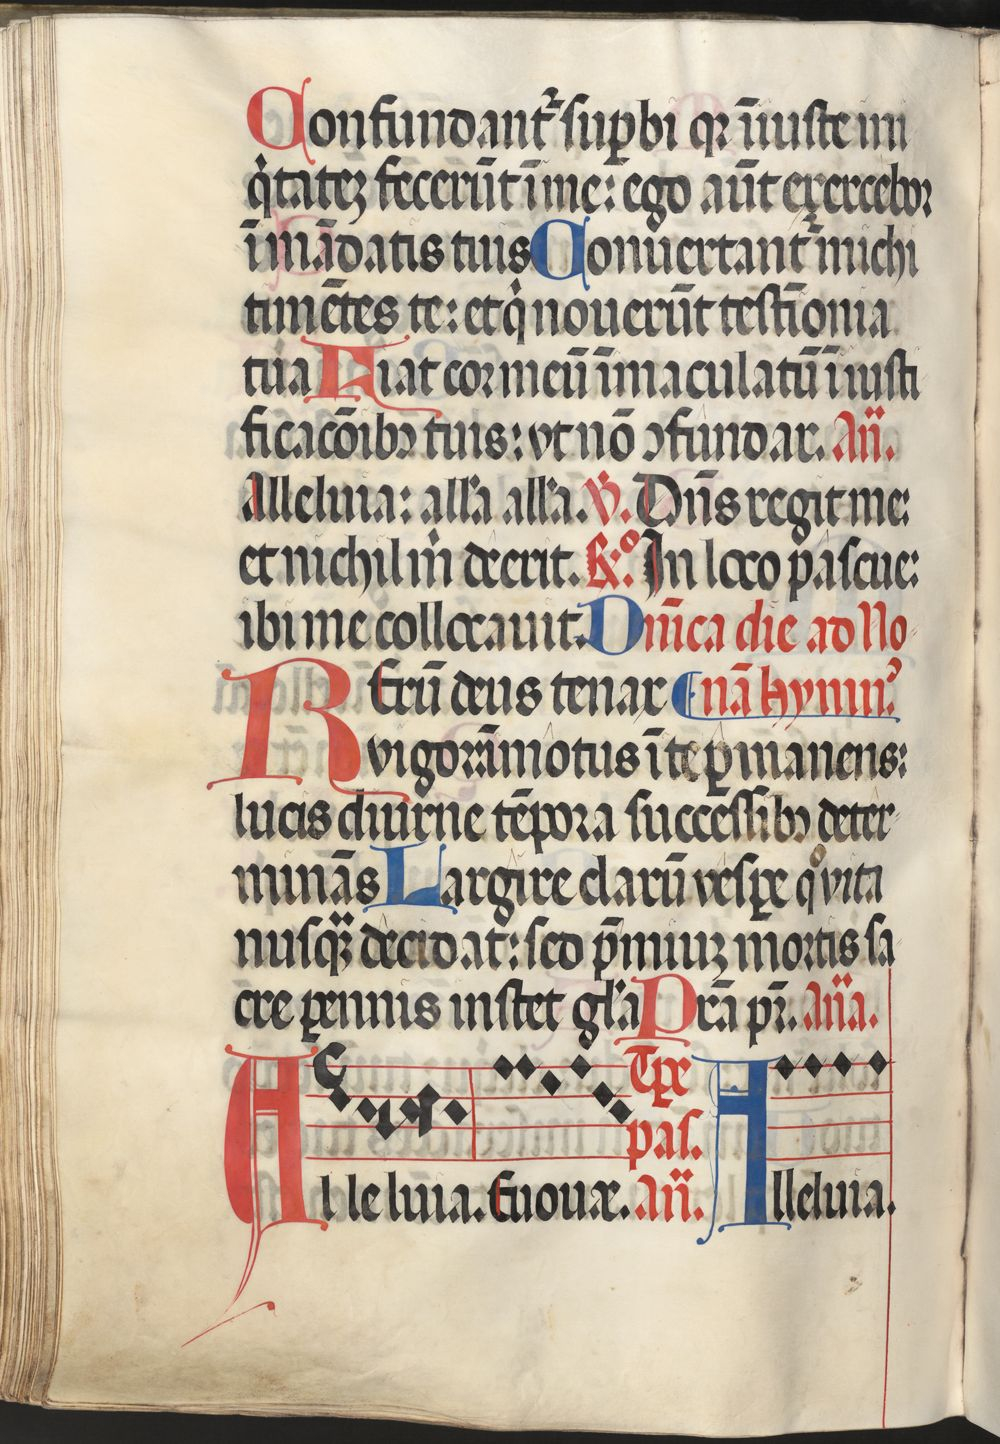 Confundant᷑ suꝑbi qꝛ īiuste ini
q̇tateꝫ fecerūt ī me: ego aūt exercebor
ī mādatis tuis Conuertant᷑ michi
timētes te: et q̇ nouerūt testīonia
tua Fiat cor meū īmaculatū ī iusti
ficacōibꝫ tuis: vt nō ↄfundar. An̄.
Alleluia: all'a all'a. ℣. Dn̄s regit me:
et nichil m̄ deerit. ℟o. In loco pascue:
ibi me collocauit. Dn̄ica die ad No
REꝝ deus tenax nā hymn᷒
vigor īmotus ī te ꝑmanens:
lucis diurne tēpora successibꝫ deter
minās Largire clarū vesꝑe qͦ vita
nusqꝫ decidat: sed p̄miuꝫ mortis sa
cre ꝑennis instet gl'a Pr̄a pr̄. An̄a.
Tꝑe
pas.
Alleluia. Euouae. An̄. Alleluia.